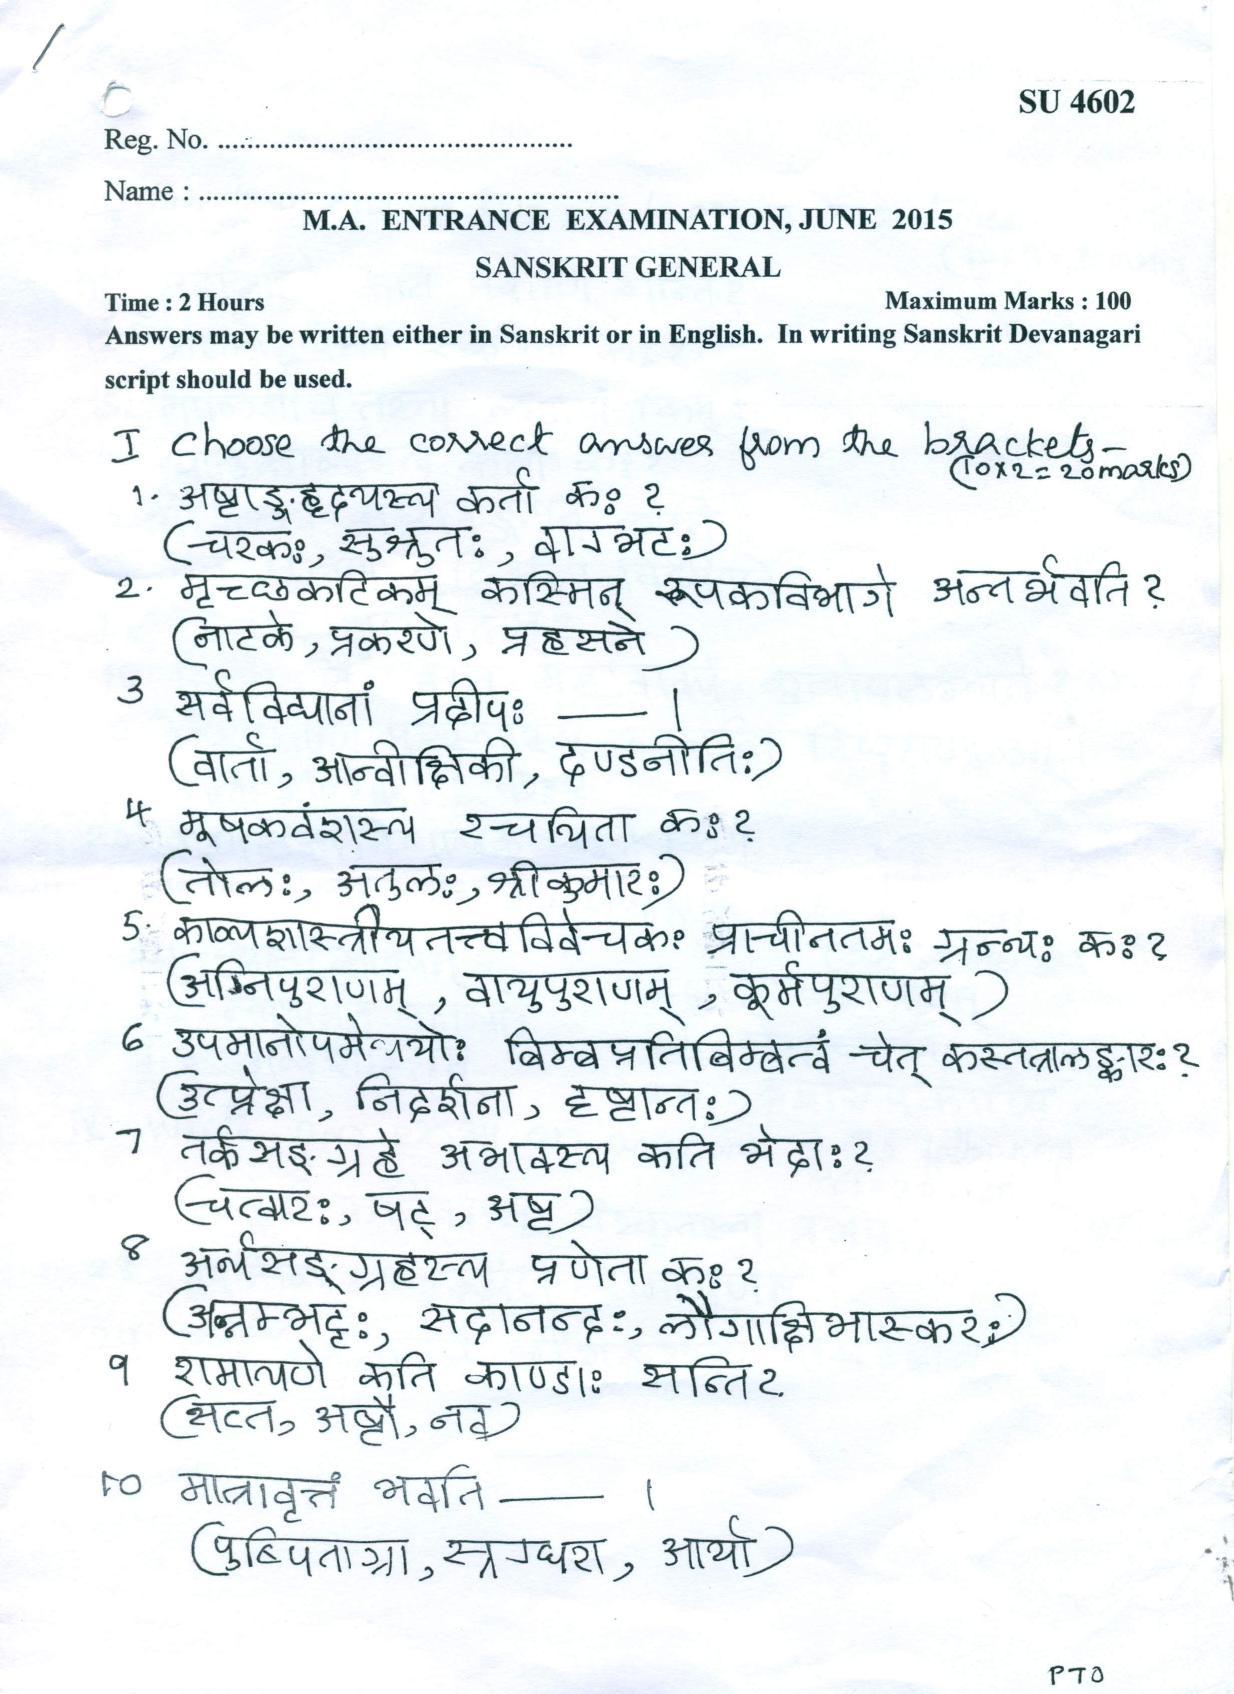 SU 4602
Reg. No. ................................................
Name : .........................................................
M.A. ENTRANCE EXAMINATION, JUNE 2015
SANSKRIT GENERAL
Time : 2 Hours Maximum Marks : 100
Answers may be written either in Sanskrit or in English. In writing Sanskrit Devanagari
script should be used.
I Choose the correct answer from the brackets –
(10x2=20marks)
1. अष्टाङ्गहृदयस्य कर्ता कः ?
(चरकः, सुश्रुतः, वाग्भटः)
2. मृच्छकटिकम् कस्मिन् रूपकविभागे अन्तर्भवति ?
(नाटके, प्रकरणे, प्रहसने)
3 सर्वविद्यानां प्रदीपः —— ।
(वार्ता, आन्वीक्षिकी, दण्डनीतिः)
4 मूषकवंशस्य रचयिता कः ?
(तोलः, अतुलः, श्रीकुमारः)
5. काव्यशास्त्रीयतत्त्वविवेचकः प्राचीनतमः ग्रन्थः कः ?
(अग्निपुराणम्, वायुपुराणम्, कूर्मपुराणम्)
6 उपमानोपमेययोः बिम्बप्रतिबिम्बत्वं चेत् कस्तत्रालङ्कारः ?
(उत्प्रेक्षा, निदर्शना, दृष्टान्तः)
7 तर्कसङ्ग्रहे अभावस्य कति भेदाः ?
(चत्वारः, षट्, अष्ट)
8 अर्थसङ्ग्रहस्य प्रणेता कः ?
(अन्नम्भट्टः, सदानन्दः, लौगाक्षिभास्करः)
9 रामायणे कति काण्डाः सन्ति ?
(सप्त, अष्टौ, नव)
10 मात्रावृत्तं भवति —— ।
(पुष्पिताग्रा, स्रग्धरा, आर्या)
PTO